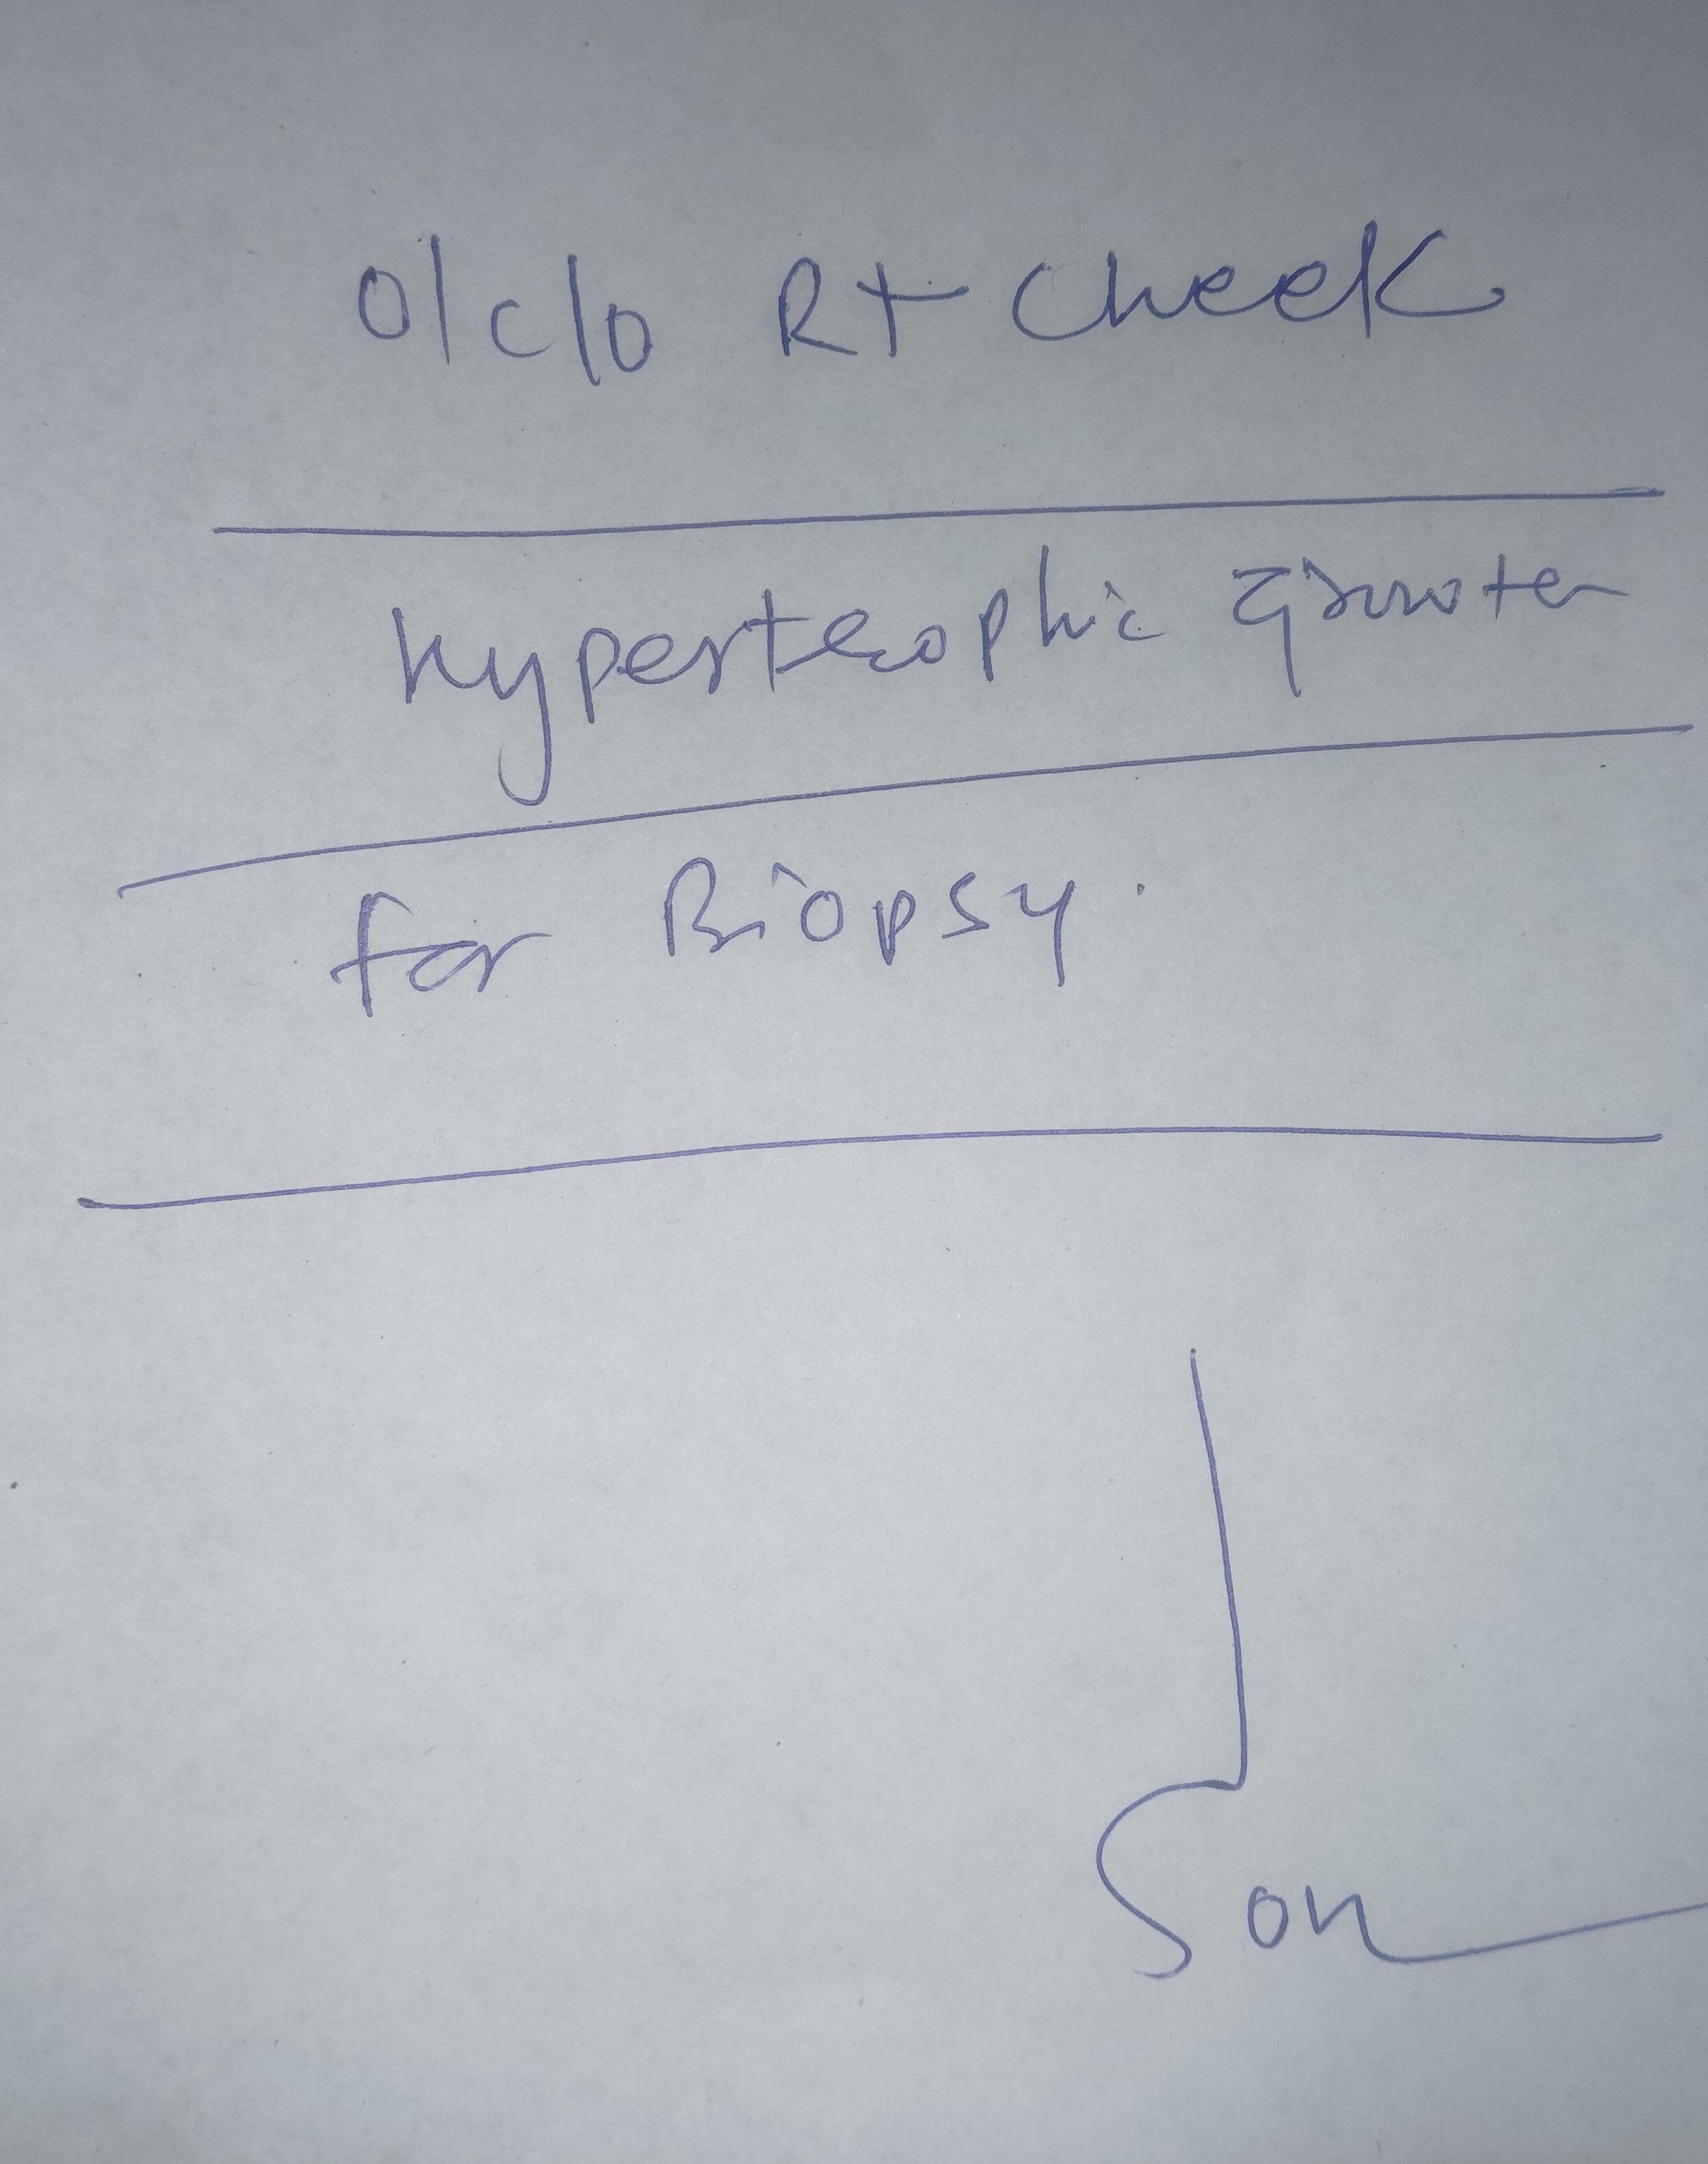 O/c/o Rt cheek
hypertrophic growth
for Biopsy.
Son